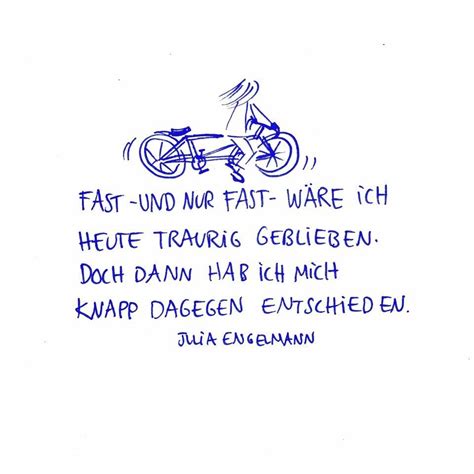 FAST -UND NUR FAST- WÄRE iCH
HEUTE TRAURIG GEBLIEBEN.
DOCH DANN HAB iCH MiCH
KNAPP DAGEGEN ENTSCHIEDEN.
JULiA ENGELMANN